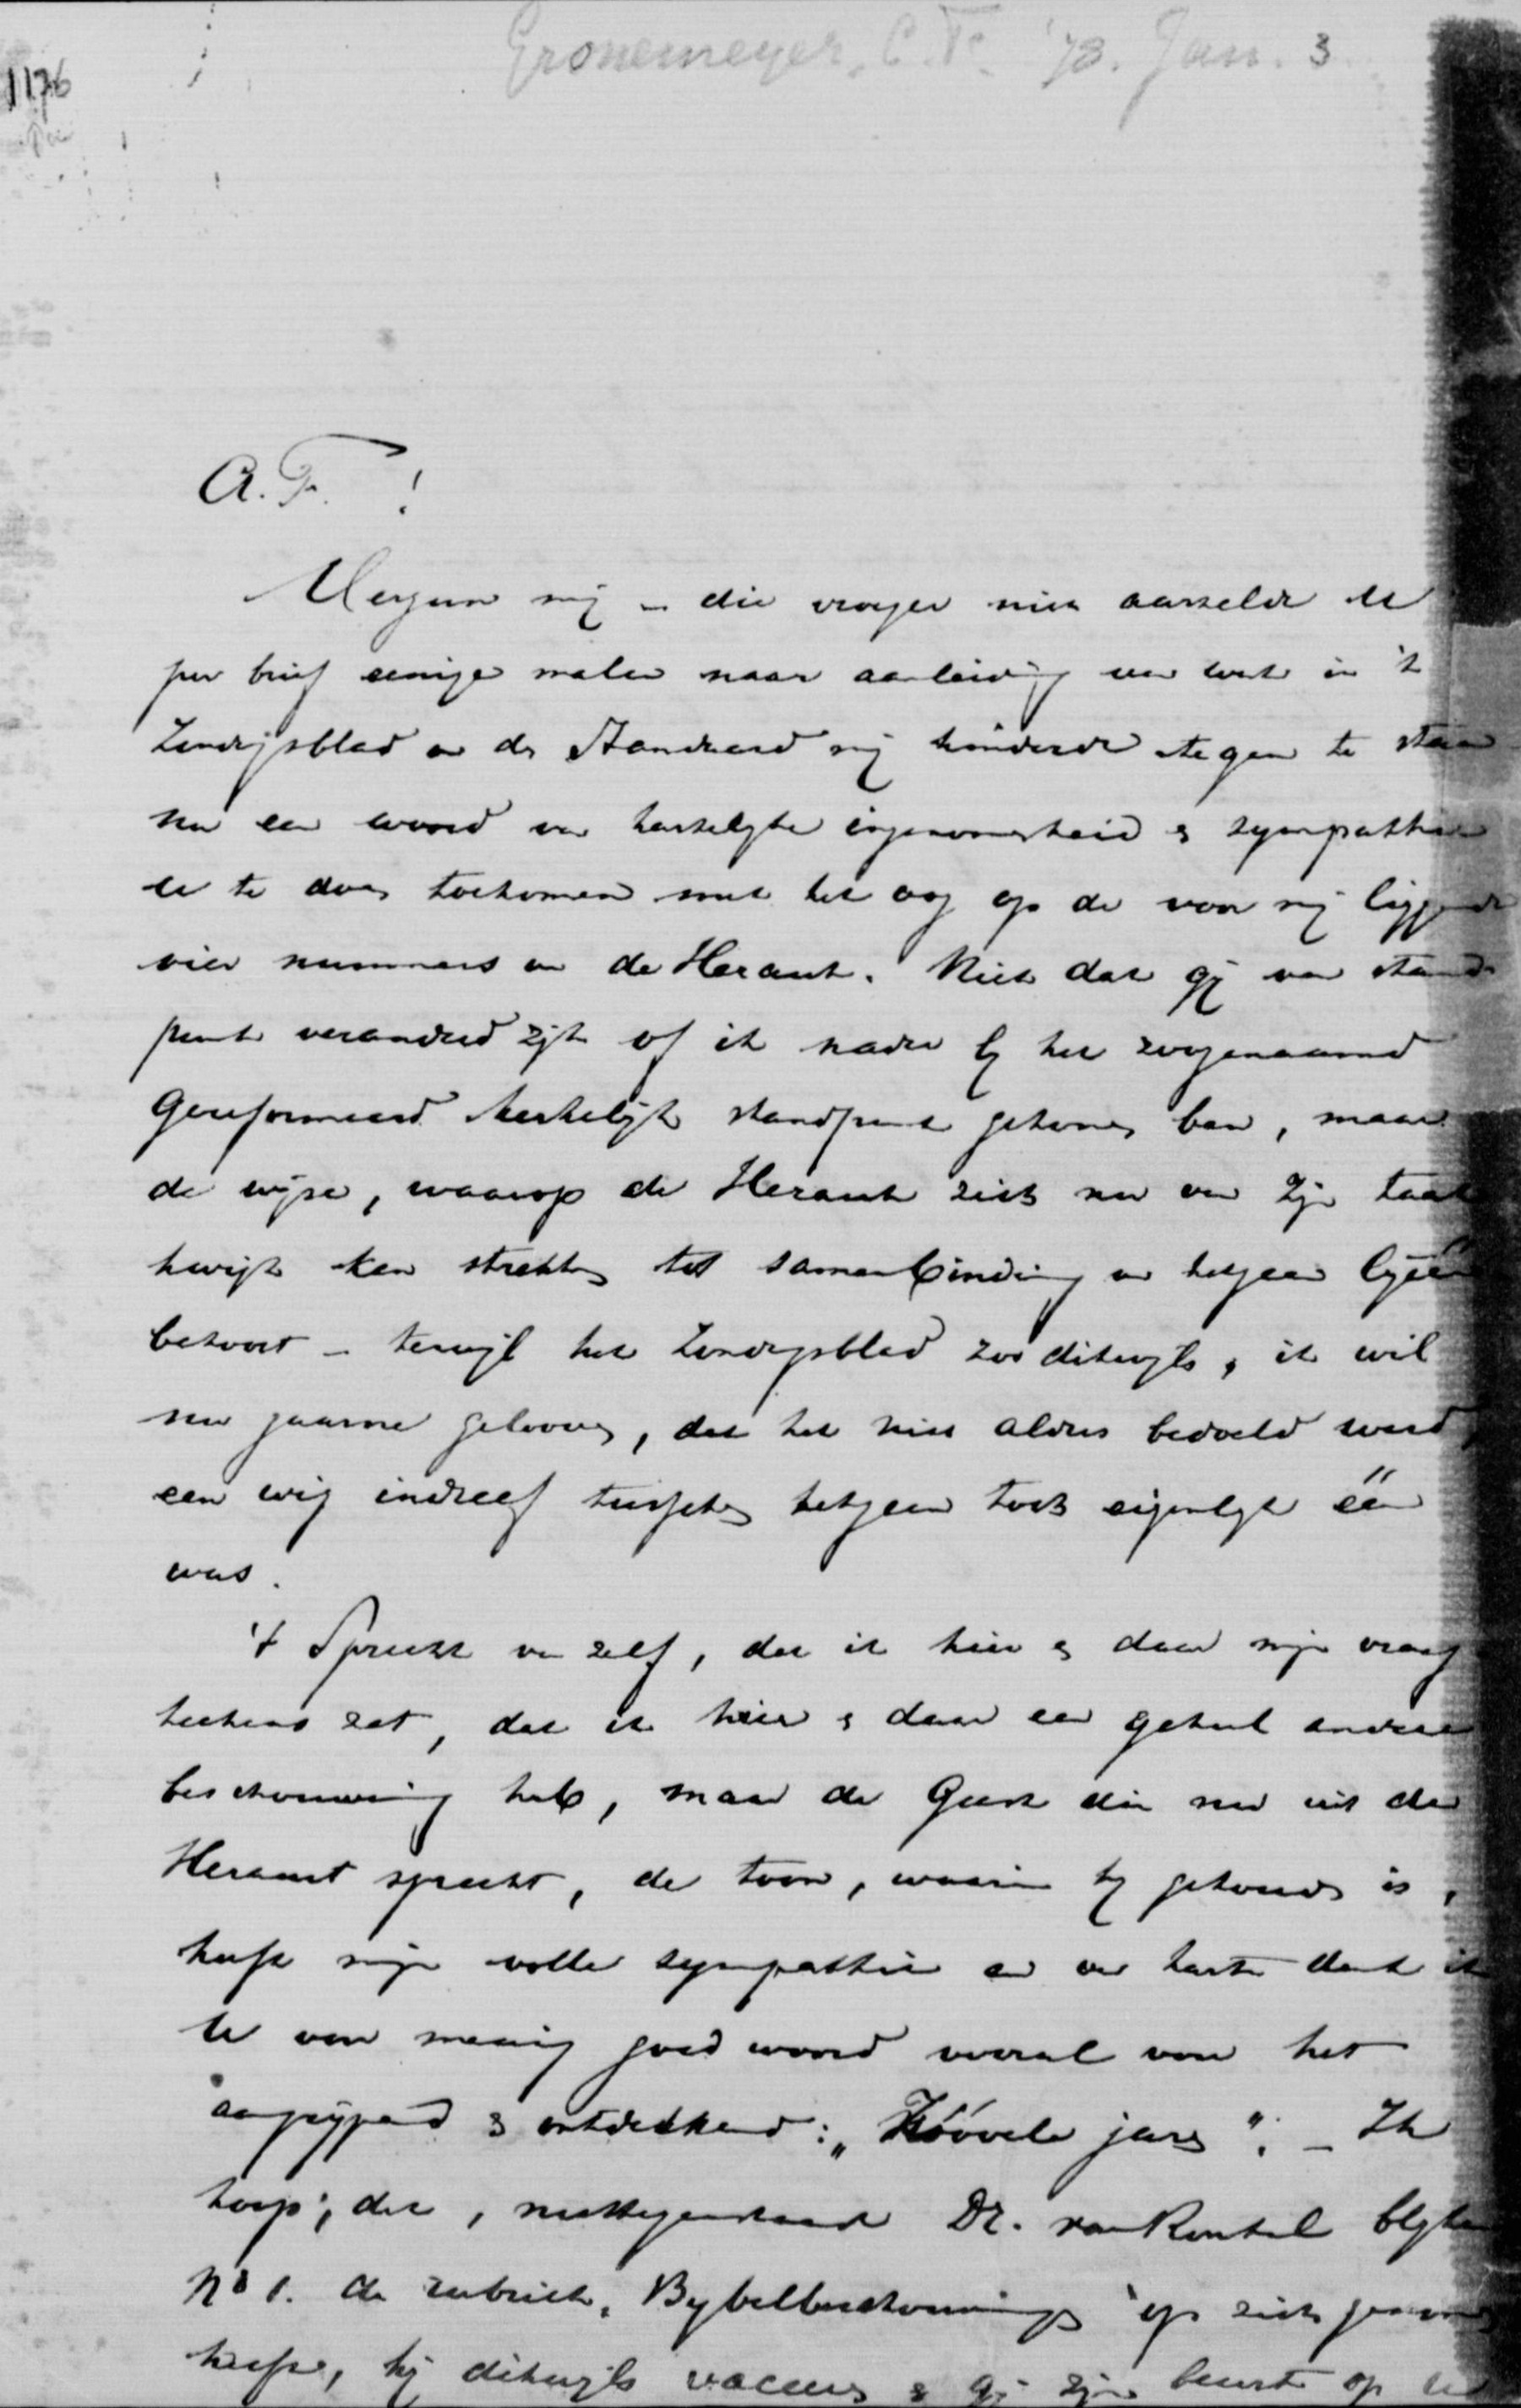 Gronemeyer, C.F. '78. Jan. 3
1176
A.F. !
Vergun mij – die vroeger niet aarzelde U
per brief eenige malen naar aanleiding van wat in 't
Zondagsblad van de Standaard mij hinderde tegen te staan
nu een woord van hartelijke ingenomenheid & sympathie
U te doen toekomen met het oog op de voor mij liggende
vier nummers van de Heraut. Niet dat gij van stand-
punt veranderd zijt of ik nader bij het zoogenaamd
Gereformeerd kerkelijk standpunt gekomen ben, maar
de wijze, waarop de Heraut zich nu van zijn taak
kwijt kan strekken tot samenbinding van hetgeen bijeen
behoort – terwijl het Zondagsblad zoo dikwijls, ik wil
nu gaarne gelooven, dat het niet aldus bedoeld werd,
een wig indreef tusschen hetgeen toch eigenlijk één
was.
't Spreekt van zelf, dat ik hier & daar mijn vraag
teekens zet, dat ik hier & daar een geheel andere
beschouwing heb, maar de Geest die nu uit de
Heraut spreekt, de toon, waarin hij gehouden is,
heeft mijn volle sympathie en van harte dank ik
U voor menig goed woord vooral voor het
aangrijpend & ontdekkend: „Zóóvele jaren". – Ik
hoop, dat, niettegenstaande Dr. van Ronkel blijkens
No 1. de rubriek „Bybelbeschouwing" op zich genomen
heeft, hij dikwijls vaceere & gij zijn beurt op